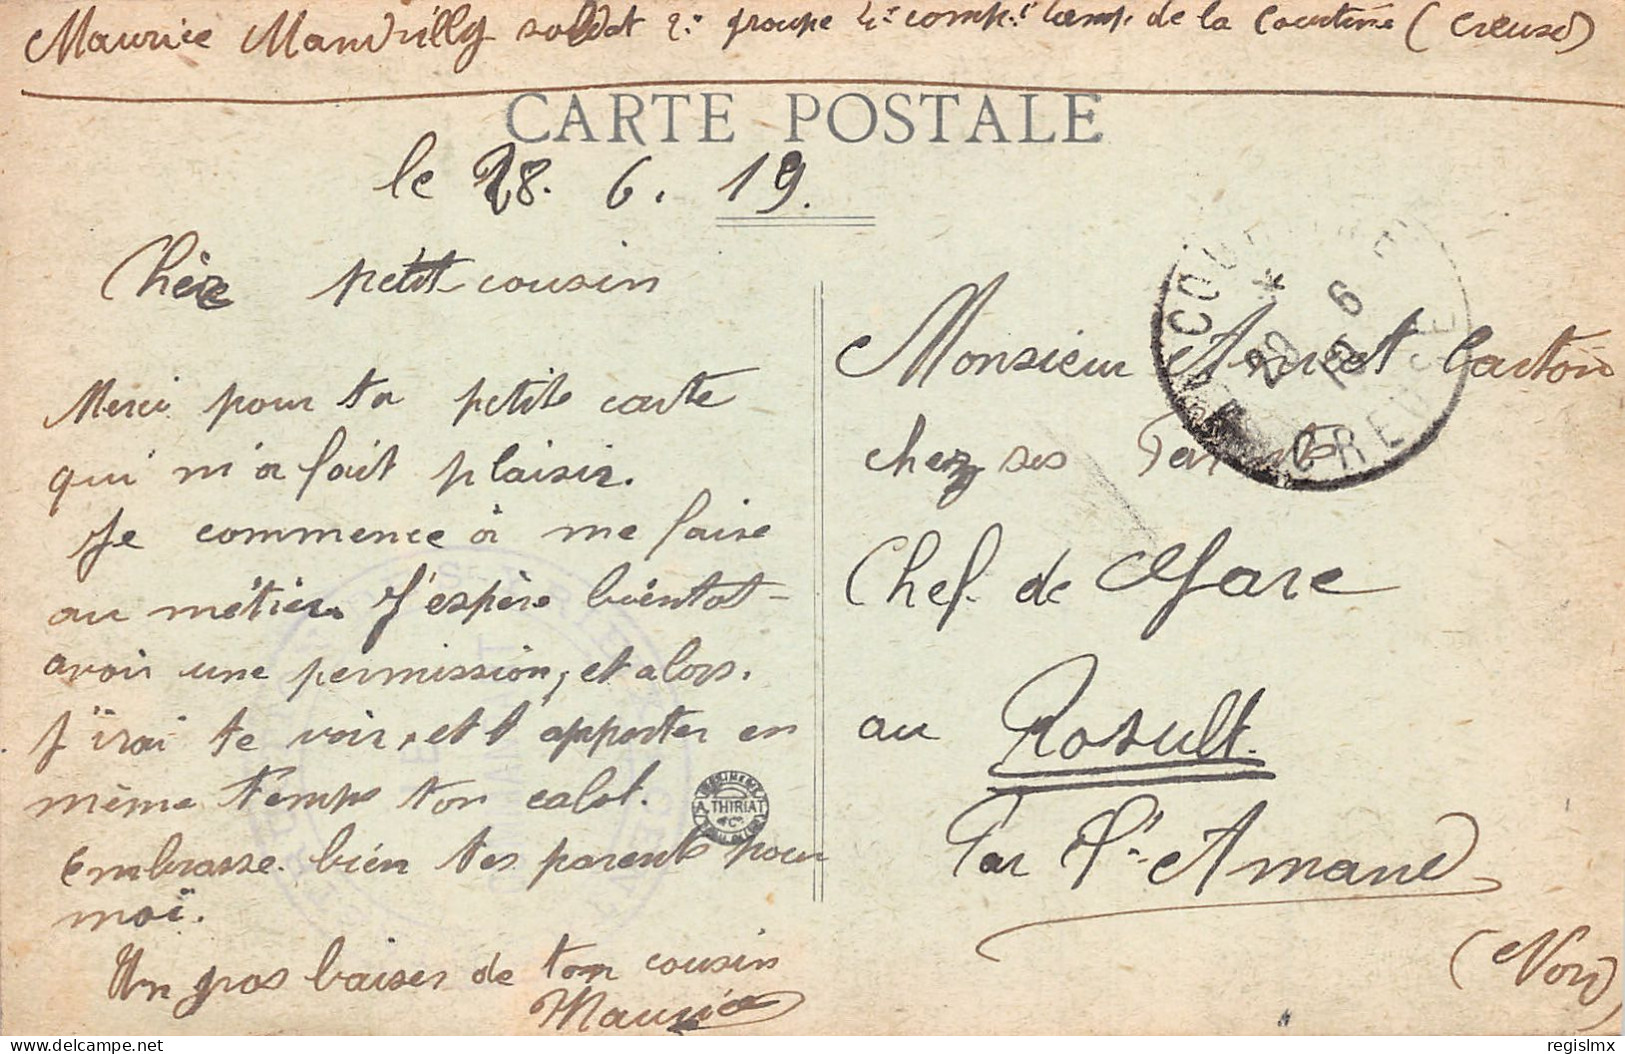 Maurice Mandrilly soldat 2e groupe 4e comp.ie Camp de la Courtine (Creuse)
CARTE POSTALE
le 28. 6. 19.
Chère petit cousin
Merci pour ta petite carte
qui m'a fait plaisir.
Je commence à me faire
au métier. J'espère bientot
avoir une permission, et alors.
j'irai te voir, et t'apporter en
même temps ton calot.
Embrasse bien tes parents pour
moi.
Un gros baiser de ton cousin
Maurice
A. THIRIAT
Monsieur Carton
chez ses Parents
Chef de Gare
au Rosult.
Par St Amand
(Nord)
29 6
19
CREUSE
delcampe.net
regislmx